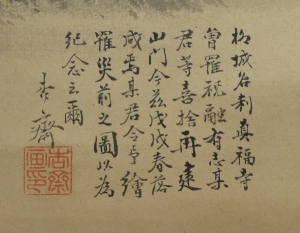 柳城名刹真福寺
曾罹祝融有志某
君等喜捨再建
山門今茲戊戌春落
成焉某君令予繪
罹災前之圖以為
紀念云爾
杏齋